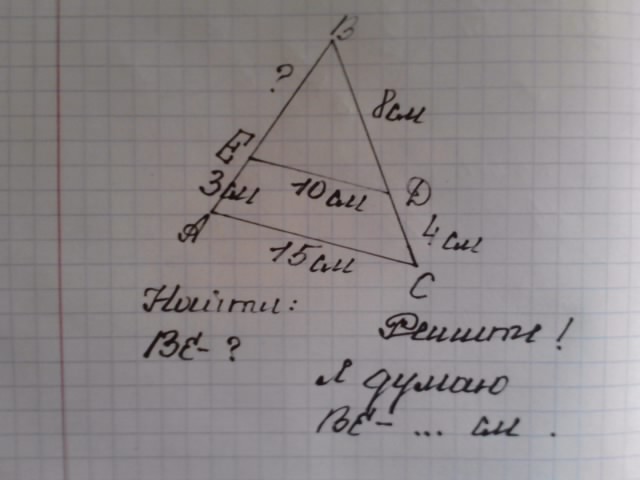 B
?
8см
E
3см
10см
D
A
15см
4см
C
Найти:
BE- ?
Решите!
Я думаю
BE- ... см .